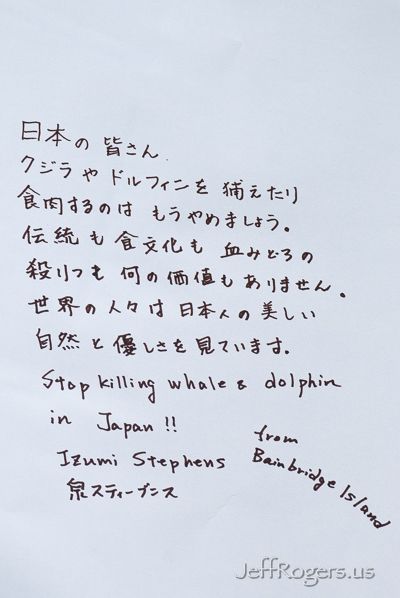 日本の皆さん
クジラやドルフィンを捕えたり
食肉するのはもうやめましょう。
伝統も食文化も血みどろの
殺りつも何の価値もありません。
世界の人々は日本人の美しい
自然と優しさを見ています。
Stop killing whale & dolphin
in Japan !!
Izumi Stephens
泉スティーブンス
from
Bainbridge Island
JeffRogers.us